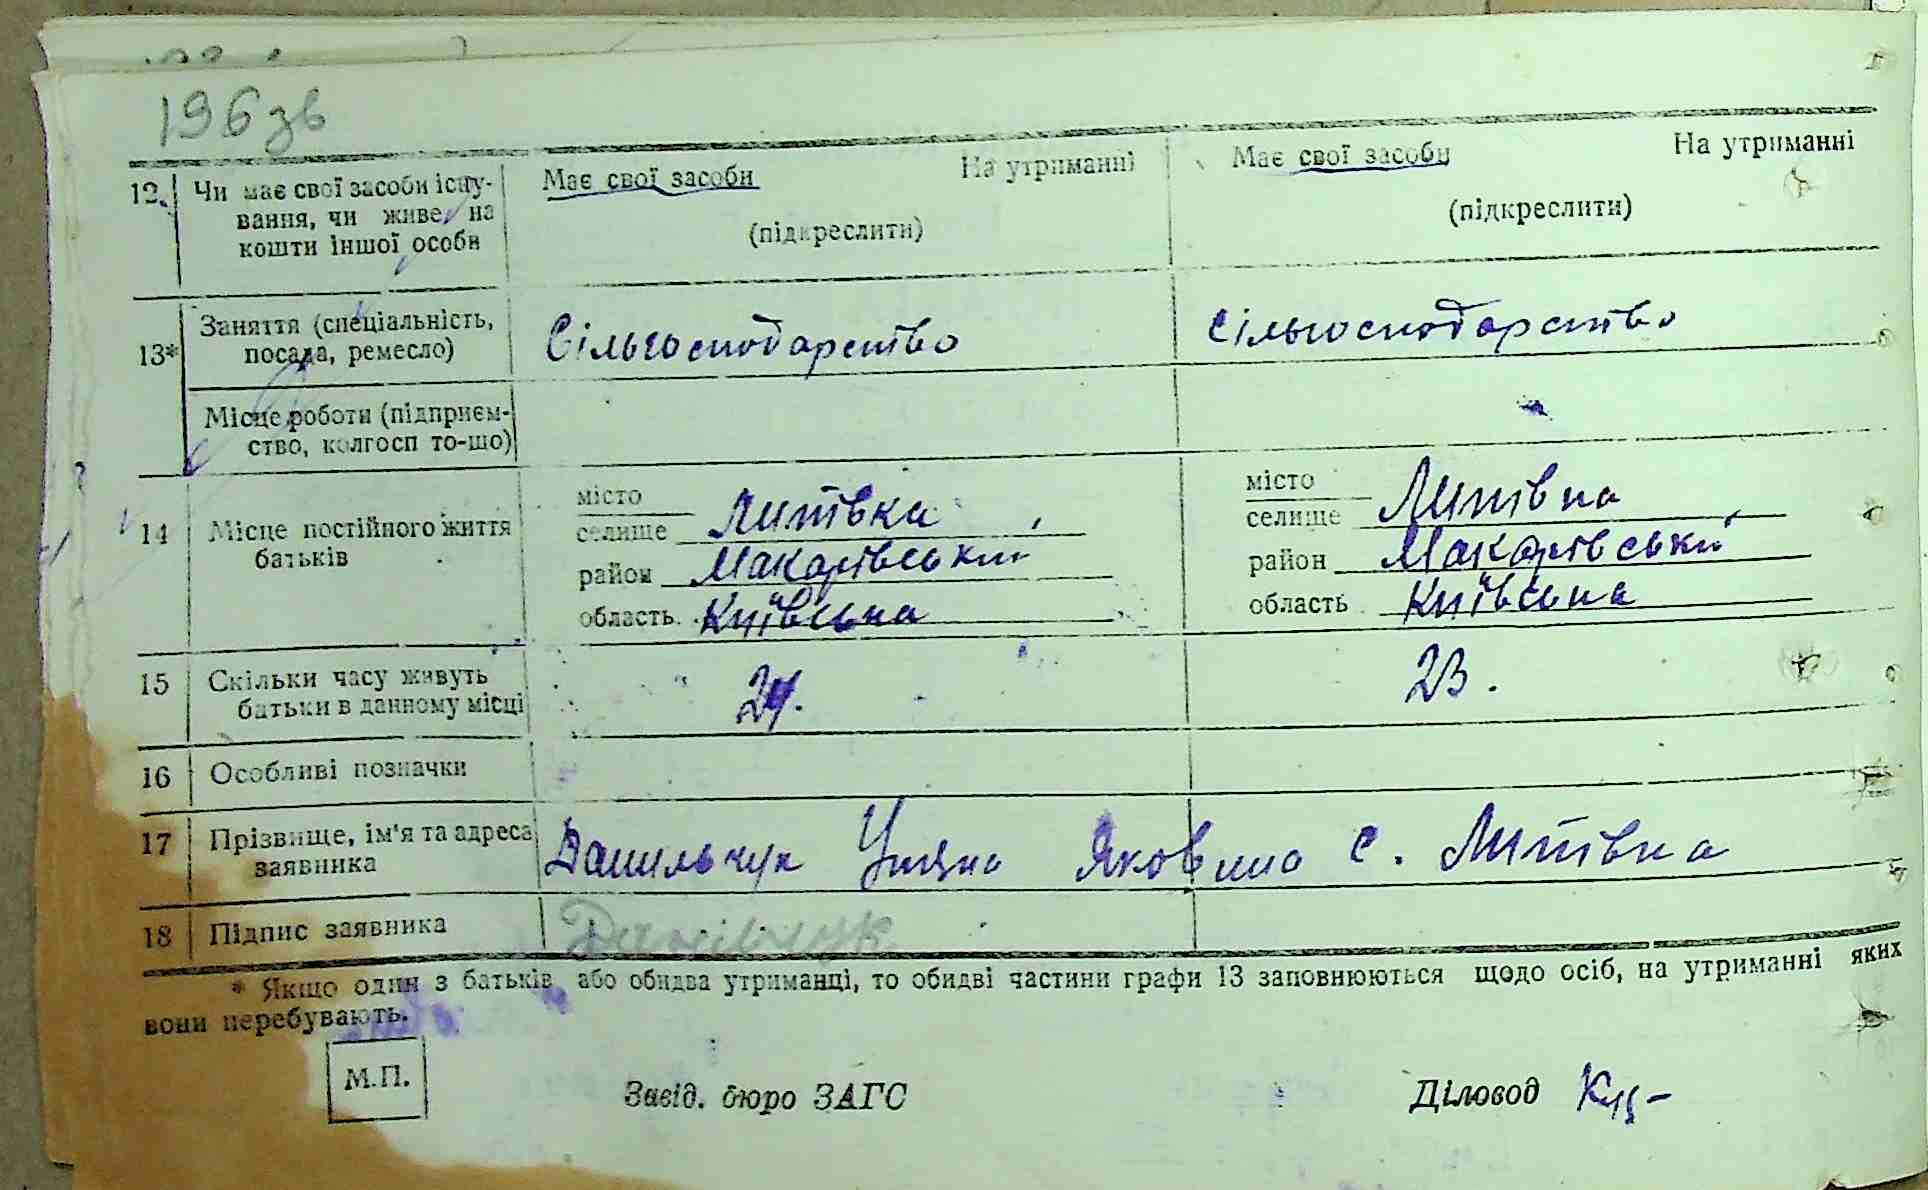 196 зв
12. Чи має свої засоби існу- Має свої засоби На утриманні Має свої засоби На утриманні
вання, чи живе на (підкреслити) (підкреслити)
кошти іншої особи
13* Заняття (спеціальність, Сільгосподарство Сільгосподарство
посада, ремесло)
Місце роботи (підприєм-
ство, колгосп то-що)
14 Місце постійного життя місто місто
батьків селище Липівка селище Липівка
район Макарівський район Макарівський
область Київська область Київська
15 Скільки часу живуть 24. 23.
батьки в данному місці
16 Особливі позначки
17 Прізвище, ім'я та адреса Данильчук Уляна Яковина с. Липівка
заявника
18 Підпис заявника Данілчук
* Якщо один з батьків або обидва утриманці, то обидві частини графи 13 заповнюються щодо осіб, на утриманні яких
вони перебувають.
М.П. Завід. бюро ЗАГС Діловод